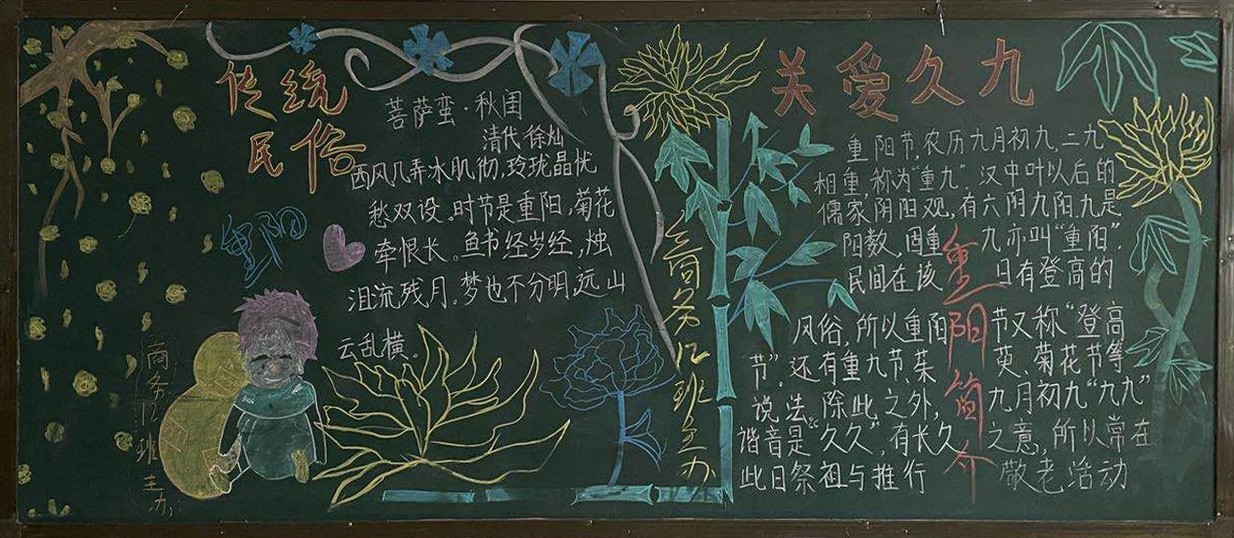 传统
民俗
菩萨蛮·秋闺
清代·徐灿
西风几弄冰肌彻,玲珑晶忱
愁双设。时节是重阳,菊花
牵恨长。鱼书经岁经,烛
泪流残月。梦也不分明,远山
云乱横。
重阳
商务12班主办
商务12班主办
关爱久九
重阳节,农历九月初九,二九
相重,称为“重九”,汉中叶以后的
儒家阴阳观,有六阴九阳.九是
阳数,固重九亦叫“重阳”.
民间在该日有登高的
风俗,所以重阳节又称“登高
节”.还有重九节、茱萸、菊花节等
说法。除此之外,九月初九“九九”
谐音是“久久”,有长久之意,所以常在
此日祭祖与推行敬老活动
重阳简介